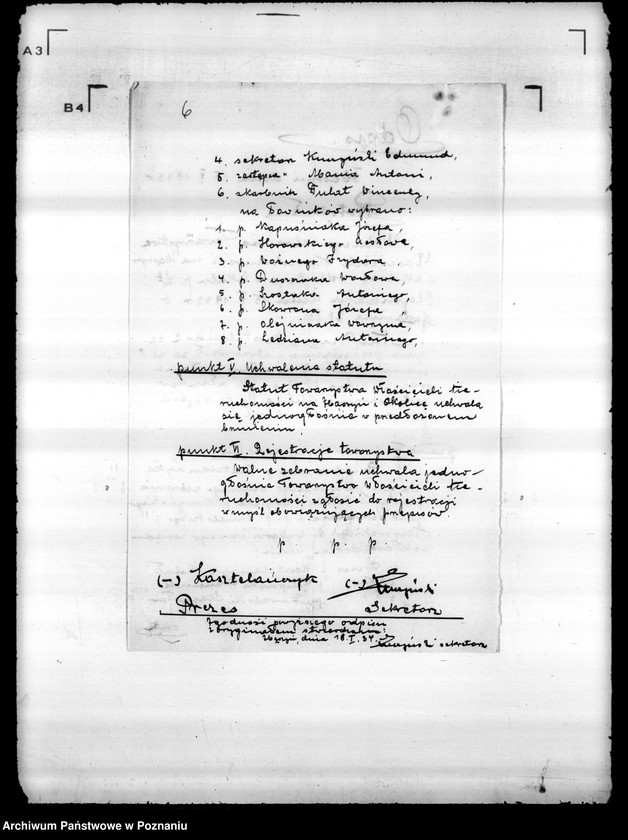 A3
B4
6
4. sekretarz Kuczyński Edmund,
5. zastępca „ Mania Antoni,
6. skarbnik Dulat Wincenty,
na Ławników wybrano:
1. p. Kapuśniaka Józefa,
2. p. Horowskiego Czesława,
3. p. Woźnego Izydora,
4. p. Duszaka Wacława,
5. p. Szostaka Antoniego,
6. p. Skowrona Józefa
7. p. Olejniczaka Wawrzyna,
8. p. Ledziana Antoniego,
punkt V. Uchwalenie statutu
Statut Towarzystwa Właścicieli Nie-
ruchomości na i Okolicę uchwala
się jednogłośnie w przedłożonem
brzmieniu.
punkt VI. Rejestracje towarzystwa
Walne zebranie uchwala jedno-
głośnie Towarzystwo Właścicieli Nie-
ruchomości zgłosić do rejestracji
w myśl obowiązujących przepisów
p p. p.
(-) Kasztelańczyk (-) Kuczyński
Prezes Sekretarz
Zgodność powyższego odpisu
z oryginałem stwierdzam:
dnia 18.I.34. Kuczyński sekretarz
Archiwum Państwowe w Poznaniu